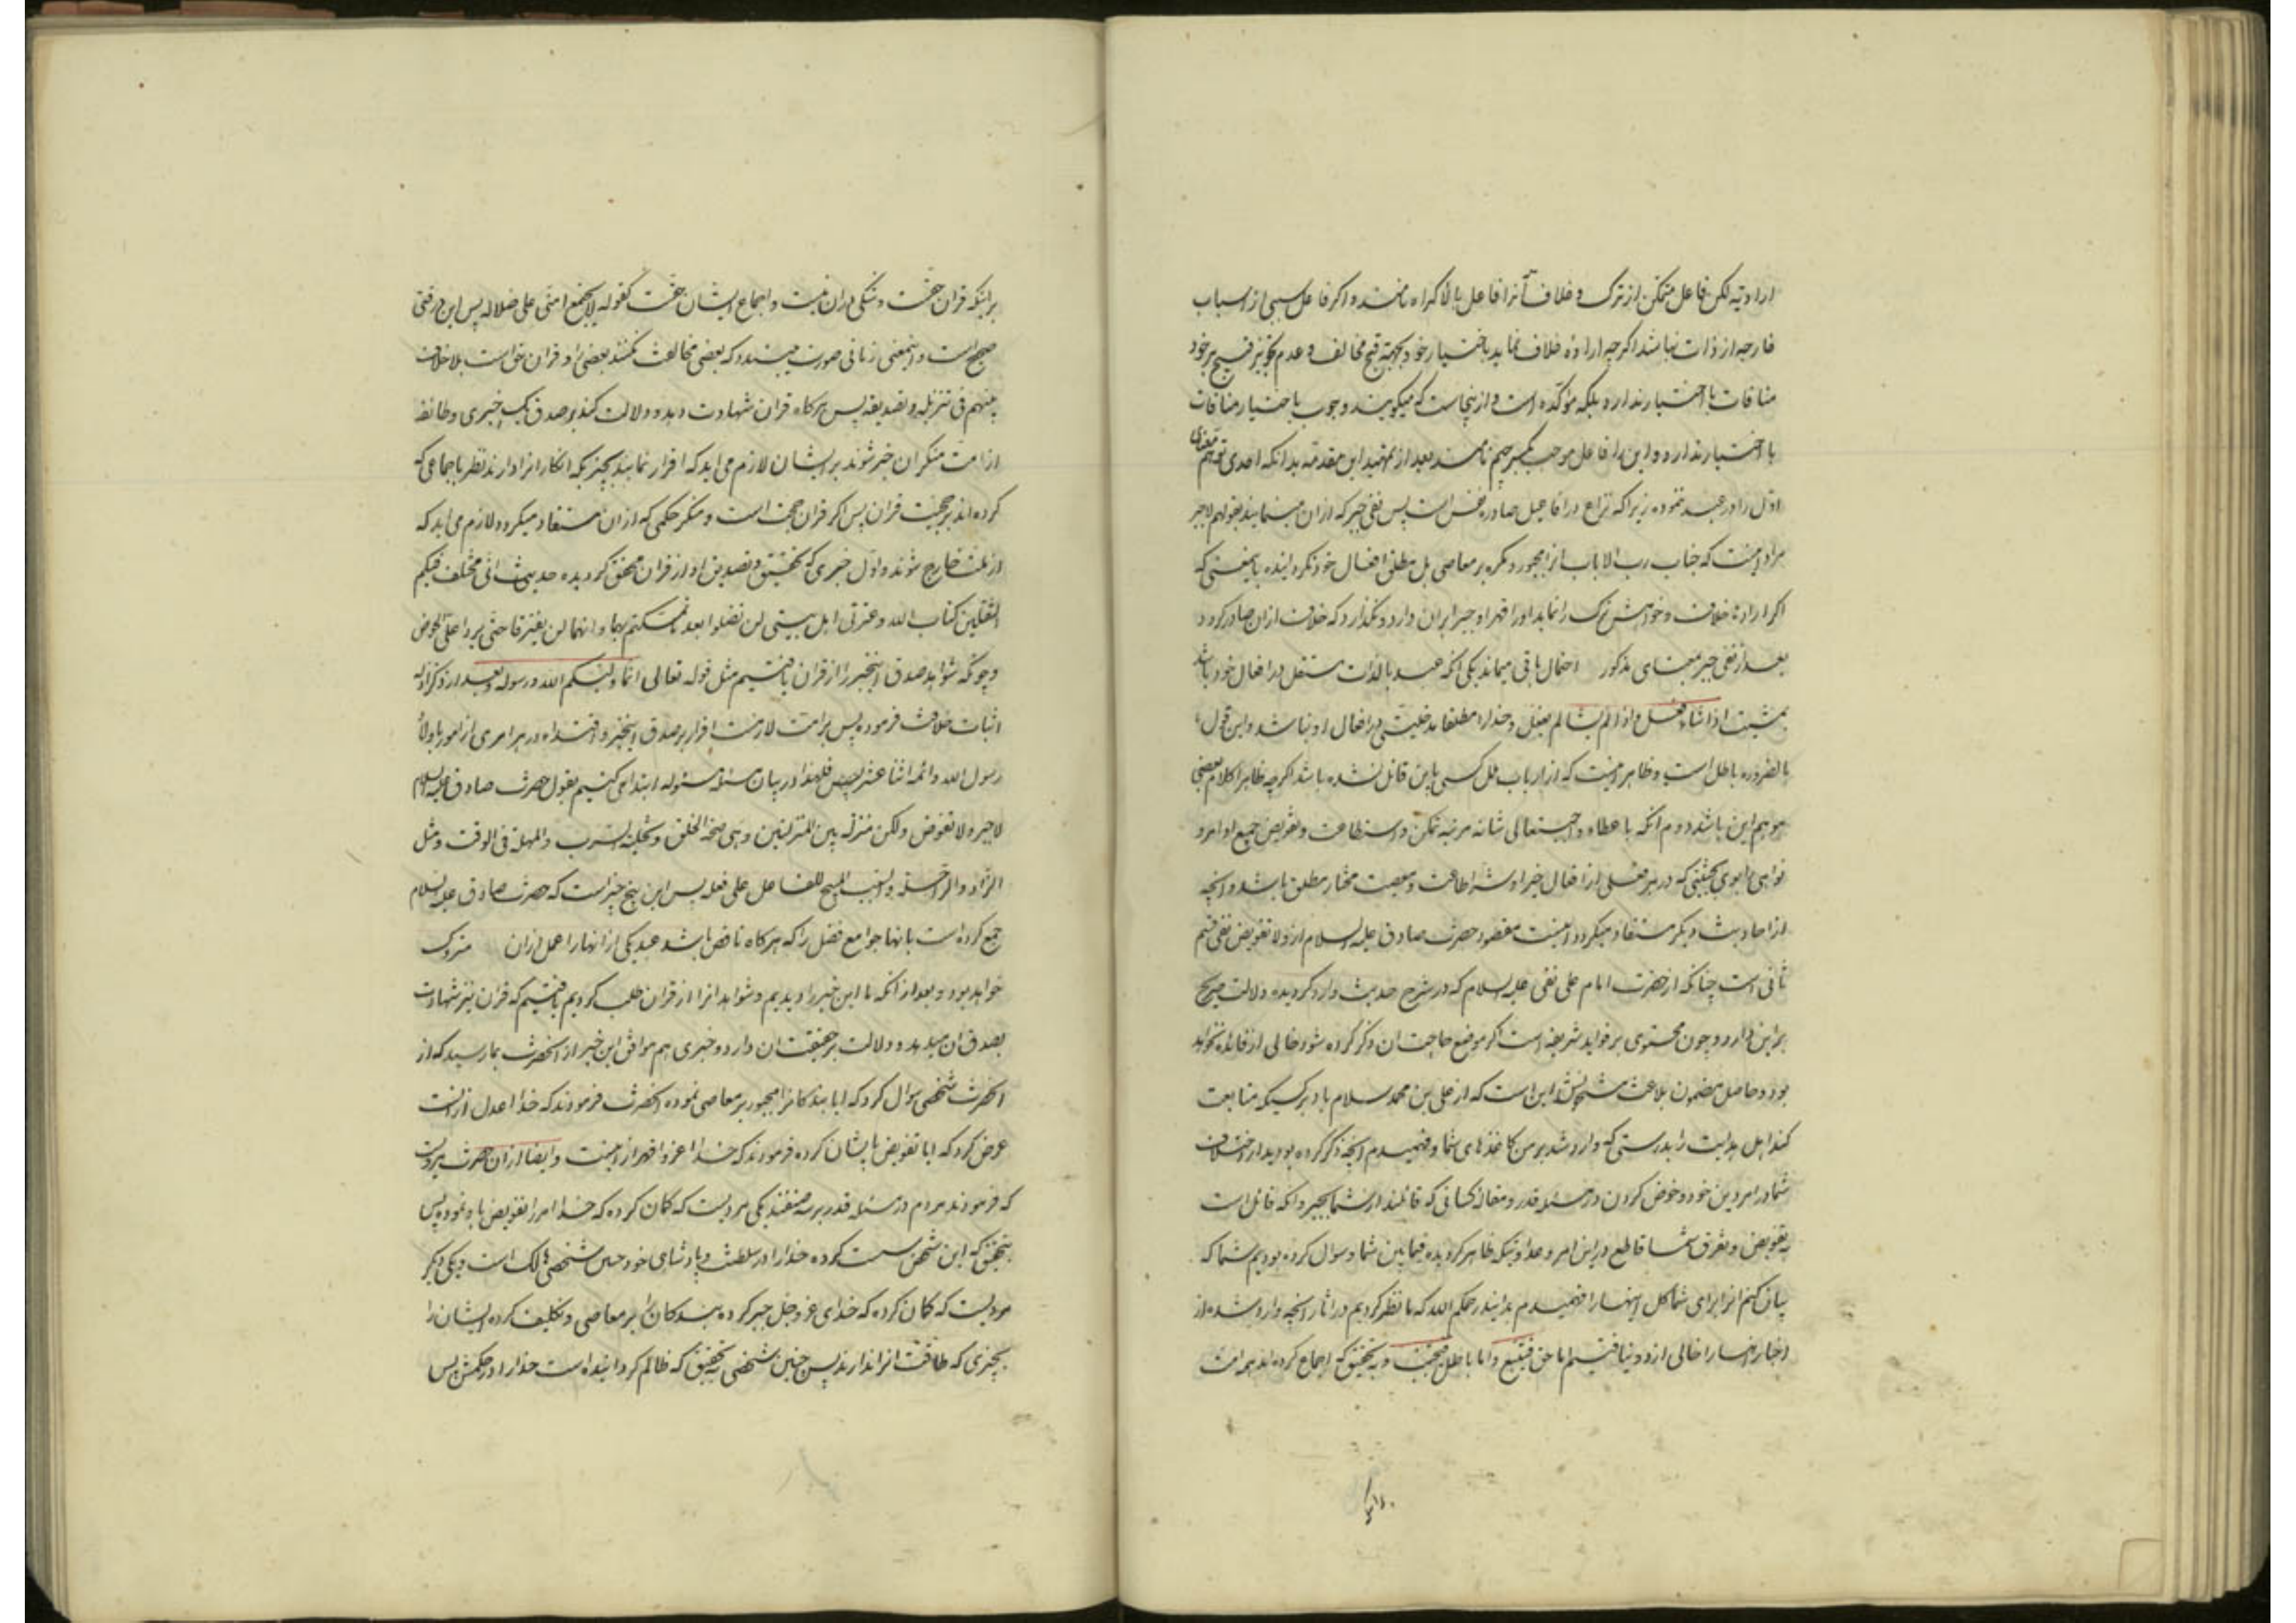 ارادیه لکن فاعل متمکن از ترک و خلاف آنرا فاعل بالاکراه نامند و اگر فاعل سببی از اسباب
خارجه از ذات نباشد اگرچه اراده خلاف نماید باختیار خود بجهة قبح مخالف و عدم تجویز قبیح بر خود
منافات با اختیار ندارد بلکه مؤکده است و از پنجاست که میگویند وجوب باختیار منافات
با اختیار ندارد و این را فاعل موجب بکسر جیم نامند بعد از تمهید این مقدمه بدانکه احدی توهم معنی
اوّل را در عبد ننموده زیرا که نزاع در افاعیل صادره نفس است پس نفی جبر که از ان مینمایند بقولهم لاجبر
مراد اینست که جناب رب الارباب انرا مجبور و مکره بر معاصی بل مطلق افعال خود نگردانیده بمعنی که
اگر اراده خلاف و خواهش ترک را نماید او را قهرا و جبرا بران دارد و نگذارد که خلاف ازان صادر گردد
بعد از نفی جبر بمعنای مذکور احتمال باقی میماند یکی انکه عبد بالذات مستقل در افعال خود باشد
بمشیت اذا شاء فعل و اذا لم یشا لم یفعل و خدا را مطلقا مدخلیتی در افعال او نباشد و این قول
بالضروره باطل است و ظاهر اینست که از ارباب ملل کسی باین قائل نشده باشد اگرچه ظاهر کلام بعضی
موهم این باشد دوم انکه باعطاء واجب تعالی شانه مرتبه تمکن و استطاعت و تفویض جمیع اوامر و
نواهی باو بحیثیتی که در هر فعلی از افعال خیرا و شرا اطاعت و معصیت مختار مطلق باشد و انچه
از احادیث دیگر مستفاد میگردد اینست مقصود حضرت صادق علیه السلام از ولا تفویض نفی قسم
ثانی است چنانکه از حضرت امام علی نقی علیه السلام که در شرح حدیث وارد گردیده دلالت صریح
براین دارد و چون محتوی بر فواید شریفه است اگر موضع حاجت ان ذکر کرده شود خالی از فائده نخواهد
بود و حاصل مضمون بلاغت مشحونش این است که از علی بن محمد سلام باد بر کسیکه متابعت
کند اهل هدایت را بدرستی که وارد شد بر من کاغذهای شما و فهمیدم انچه ذکر کرده بودید از اختلاف
شما در امر دین خود و خوض کردن در مسئله قدر و مقاله کسانی که قائلند از شما بجبر و انکه قائل است
به تفویض و تفرق شما قاطع در این امر و عداوتیکه ظاهر گردیده فیما بین شما و سوال کرده بودیم شما که
بیان کنم انرا برای شما کل اینها را فهمیدم بدانید رحمکم الله که ما نظر کردیم در اثار انچه وارد شده از
اخبار انها را خالی از دو نیافتیم اما حق فیتبع و اما باطل فیجتنب و به تحقیق که اجماع کرده اند همه امت
۳۱۶۰
برانکه قران حقست و شکی دران نیست و اجماع ایشان حقست کقوله لا یجتمع امتی علی ضلاله پس این وقتی
صحیح است و اینمعنی زمانی صورت میبندد که بعضی مخالفت نکنند بعضی را و قران حق است بلا خلاف
بینهم فی تنزیله و تصدیقه پس هرکاه قران شهادت دهد و دلالت کند بر صدق یک خبری و طائفه
از امت منکر ان خبر شوند بر ایشان لازم می اید که اقرار نمایند بچیزیکه انکار انرا دارند نظر باجماعی که
کرده اند بر حجیت قران پس اگر قران حجت است و منکر حکمی که از ان مستفاد میگردد لازم می اید که
از ملت خارج شوند و اوّل خبری که تحقیق و تصدیق او از قران محقق گردیده حدیث انی مخلف فیکم
الثقلین کتاب الله و عترتی اهل بیتی لن تضلوا بعد ما تمسکتم بهما و انهما لن یفترقا حتی یردا علیّ الحوض
و چونکه شواهد صدق اینخبر را از قران یافتیم مثل قوله تعالی انما ولیکم الله و رسوله و بعد از ذکر ادله
اثبات خلافت فرموده پس بر امت لازمست اقرار بر صدق اینخبر و اقتداء در هر امری از امور باولاد
رسول الله و ائمه اثنا عشر پس فلهذا در بیان مسئله مسئوله ابتدا می کنیم بقول حضرت صادق علیه السلام
لا جبر و لا تفویض و لکن منزلة بین المنزلتین و هی صحة الخلق و تخلیة السرب و المهلة فی الوقت و مثل
الزاد و الراحلة و السبب المهیج للفاعل علی فعله پس این پنج چیز است که حضرت صادق علیه السلام
جمع کرده است بانها جوامع فضل را که هرکاه ناقص باشد عبد یکی از انها را عمل ازان متروک
خواهد بود و بعد از انکه ما این خبر را دیدیم و شواهد انرا از قران طلب کردیم یافتیم که قران نیز شهادت
بصدق ان میدهد و دلالت بر حقیقت ان دارد و خبری هم موافق این خبر از انحضرت بما رسید که از
انحضرت شخصی سوال کرد که ایا بندکان را مجبور بر معاصی نموده انحضرت فرمودند که خدا اعدل از انست
عرض کرد که ایا تفویض بایشان کرده فرمودند که خدا اعز و اقهر از اینست و ایضا از ان حضرت مرویست
که فرمودند مردم در مسئله قدر بر سه صنفند یکی مردیست که گمان کرده که خدا امر را تفویض باو نموده پس
بتحقیق که این شخص سست کرده خدا را در سلطنت و پادشاهی خود چنین شخصی هالک است و یکی دیگر
مردیست که کمان کرده که خدای عز و جل جبر کرده بندکان را بر معاصی و تکلیف کرده ایشان را
بچیزی که طاقت انرا ندارند پس چنین شخصی به تحقیق که ظالم گردانیده است خدا را در حکمش پس